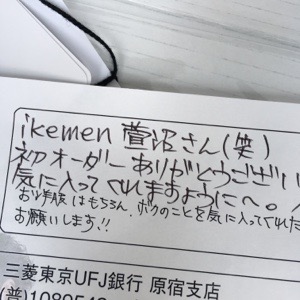 ikemen 菅沼さん(笑)
初オーダーありがとうござい
気に入ってくれますように〜。
お洋服はもちろん、ボクのことを気に入ってくれた
お願いします!!
三菱東京UFJ銀行 原宿支店
(普)1080543